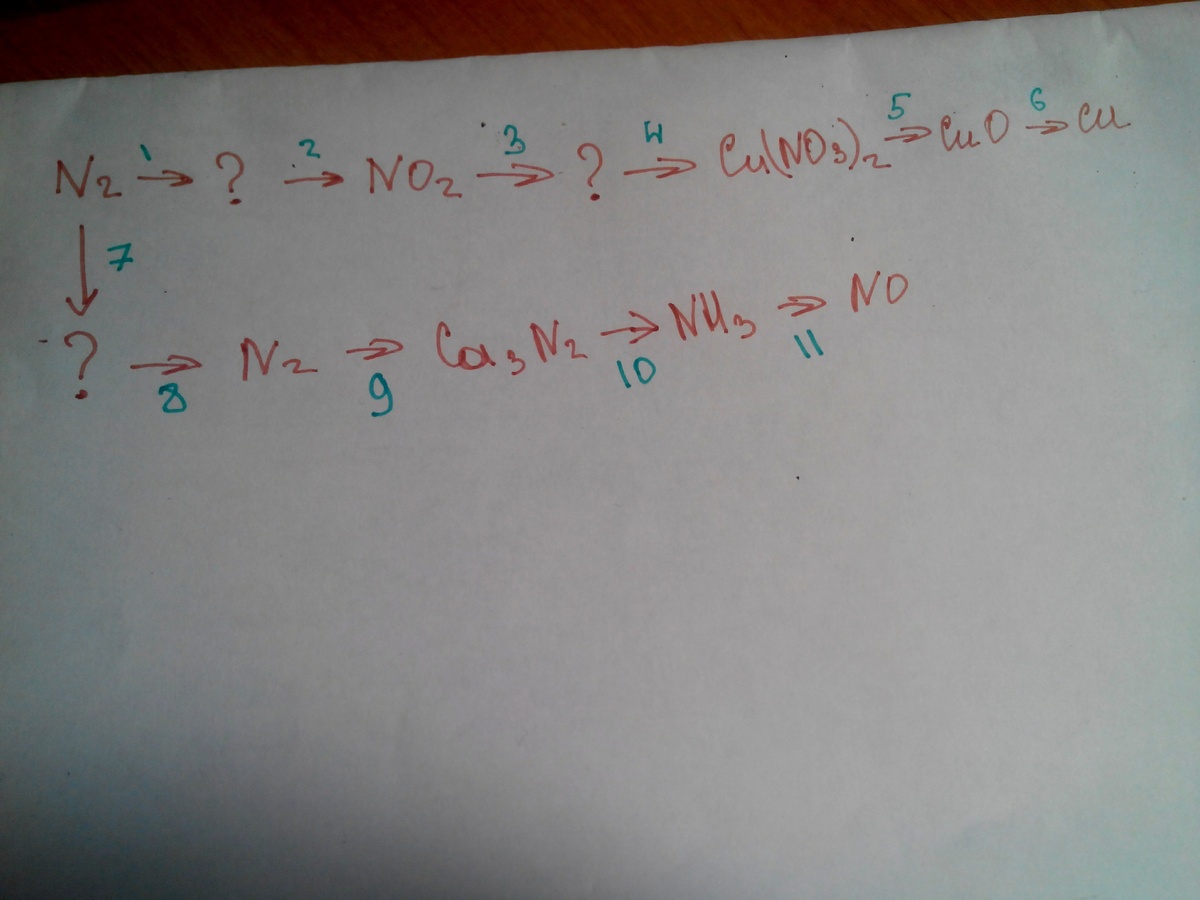 N₂ →¹ ? →² NO₂ →³ ? →⁴ Cu(NO₃)₂ →⁵ CuO →⁶ Cu
↓ 7
? →₈ N₂ →₉ Ca₃N₂ →₁₀ NH₃ →₁₁ NO